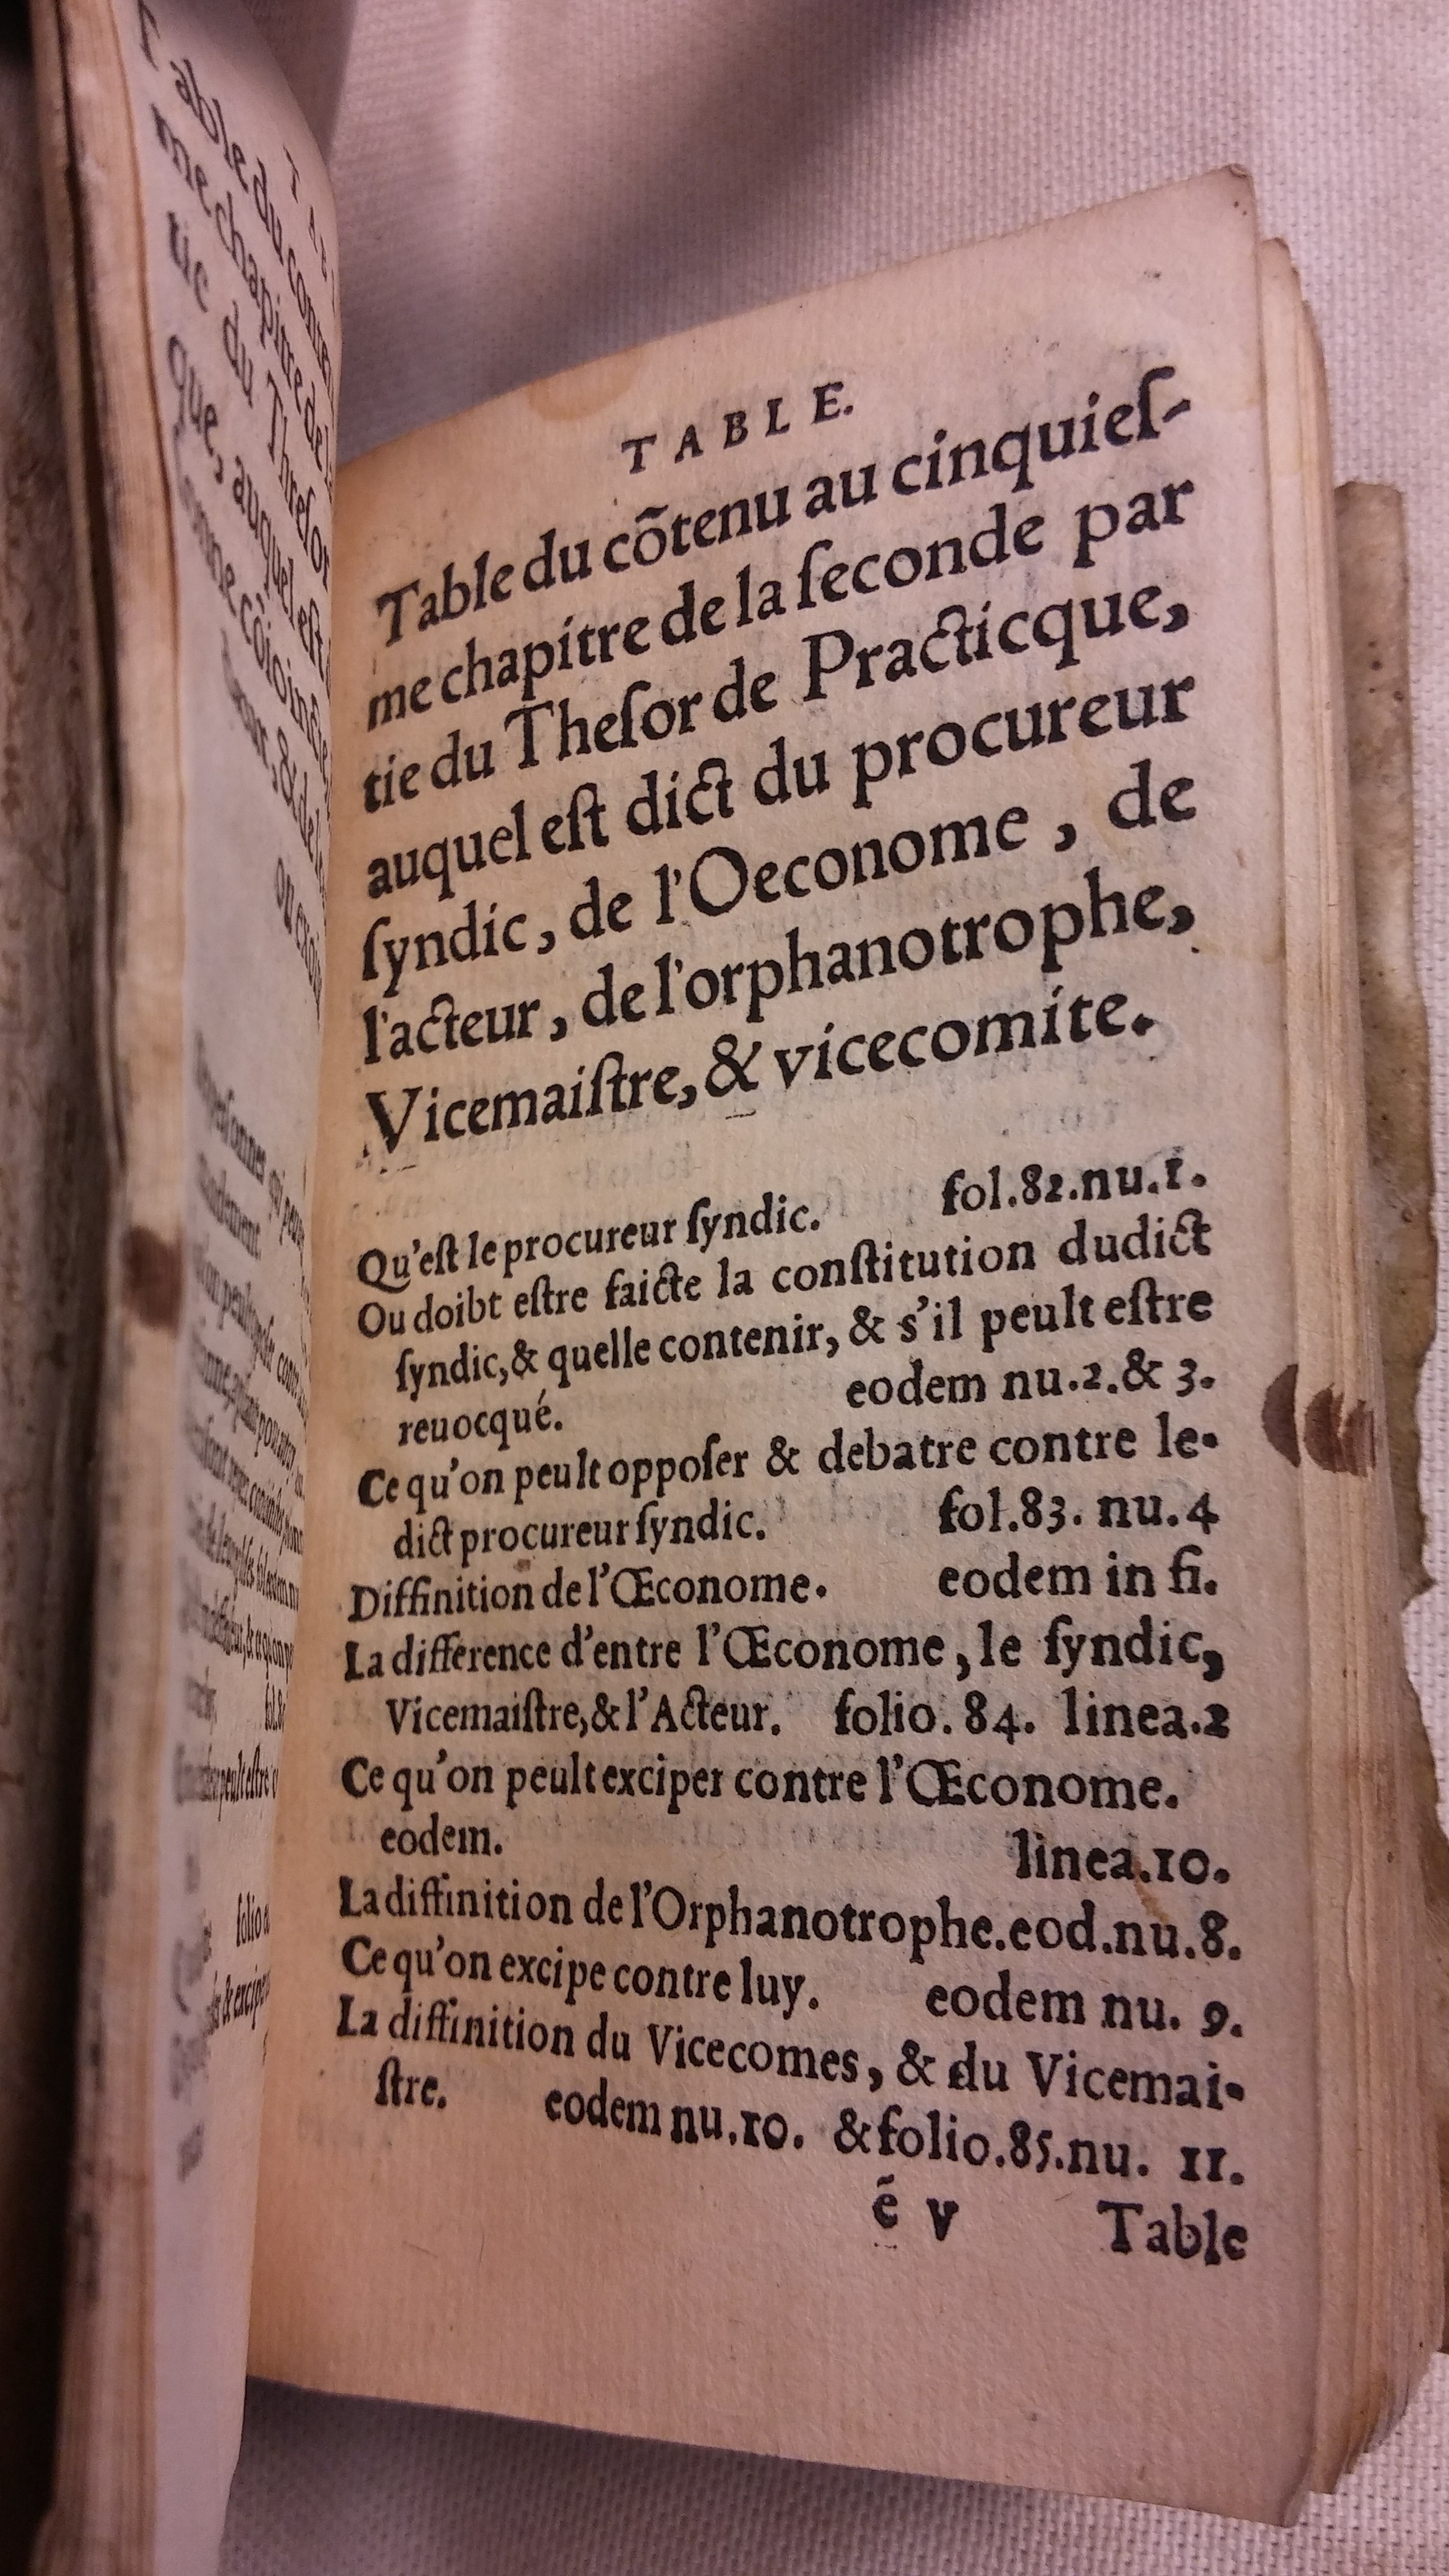 TABLE.
Table du cõtenu au cinquieſ-
me chapitre de la ſeconde par
tie du Theſor de Practicque,
auquel eſt dict du procureur
ſyndic, de l'Oeconome, de
l'acteur, de l'orphanotrophe,
Vicemaiſtre, & vicecomite.
Qu'eſt le procureur ſyndic. fol.82.nu.1.
Ou doibt eſtre faicte la conſtitution dudict
ſyndic, & quelle contenir, & s'il peult eſtre
reuocqué. eodem nu.2.& 3.
Ce qu'on peult oppoſer & debatre contre le-
dict procureur ſyndic. fol.83. nu.4
Diffinition de l'Œconome. eodem in fi.
La difference d'entre l'Œconome, le ſyndic,
Vicemaiſtre, & l'Acteur. folio.84. linea.2
Ce qu'on peult exciper contre l'Œconome.
eodem. linea.10.
La diffinition de l'Orphanotrophe.eod.nu.8.
Ce qu'on excipe contre luy. eodem nu. 9.
La diffinition du Vicecomes, & du Vicemai-
ſtre. eodem nu.10. & folio.85.nu. 11.
ẽ v Table